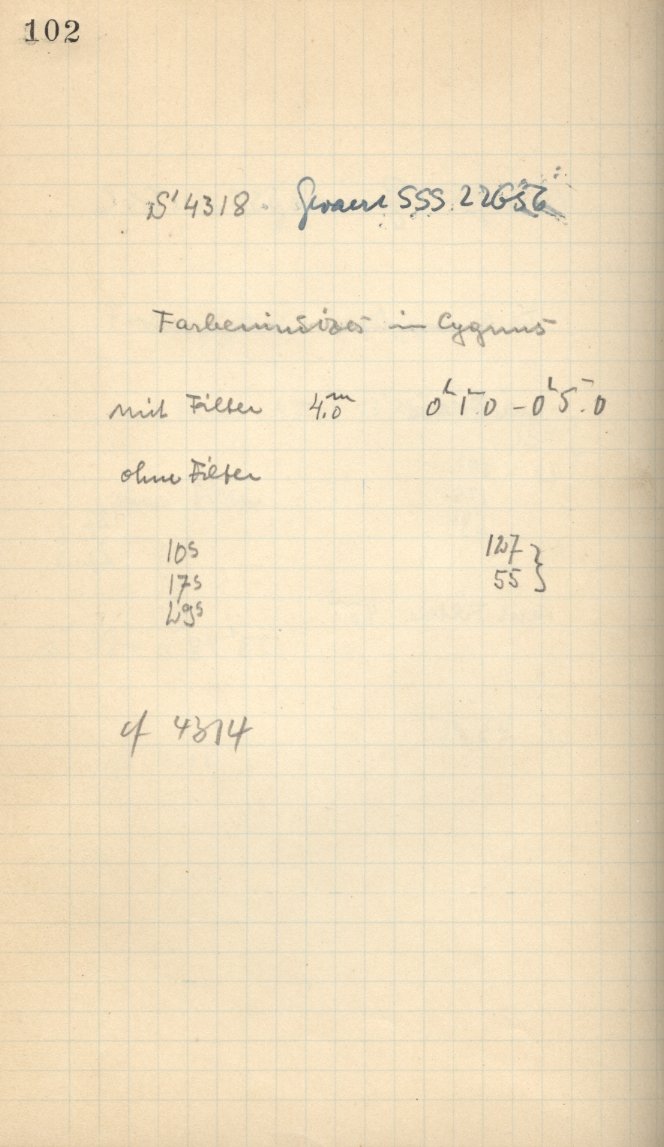 102
S 4318. Gevaert SSS 22656
Farbenindizes in Cygnus
mit Filter 4.0ᵐ 0ʰ 1ᵐ.0 – 0ʰ 5ᵐ.0
ohne Filter
10ˢ 127 }
17ˢ 55
29ˢ
cf 4314